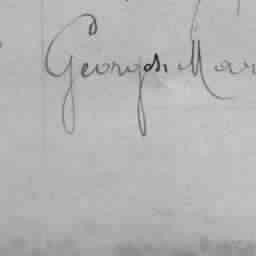 Georges Mar